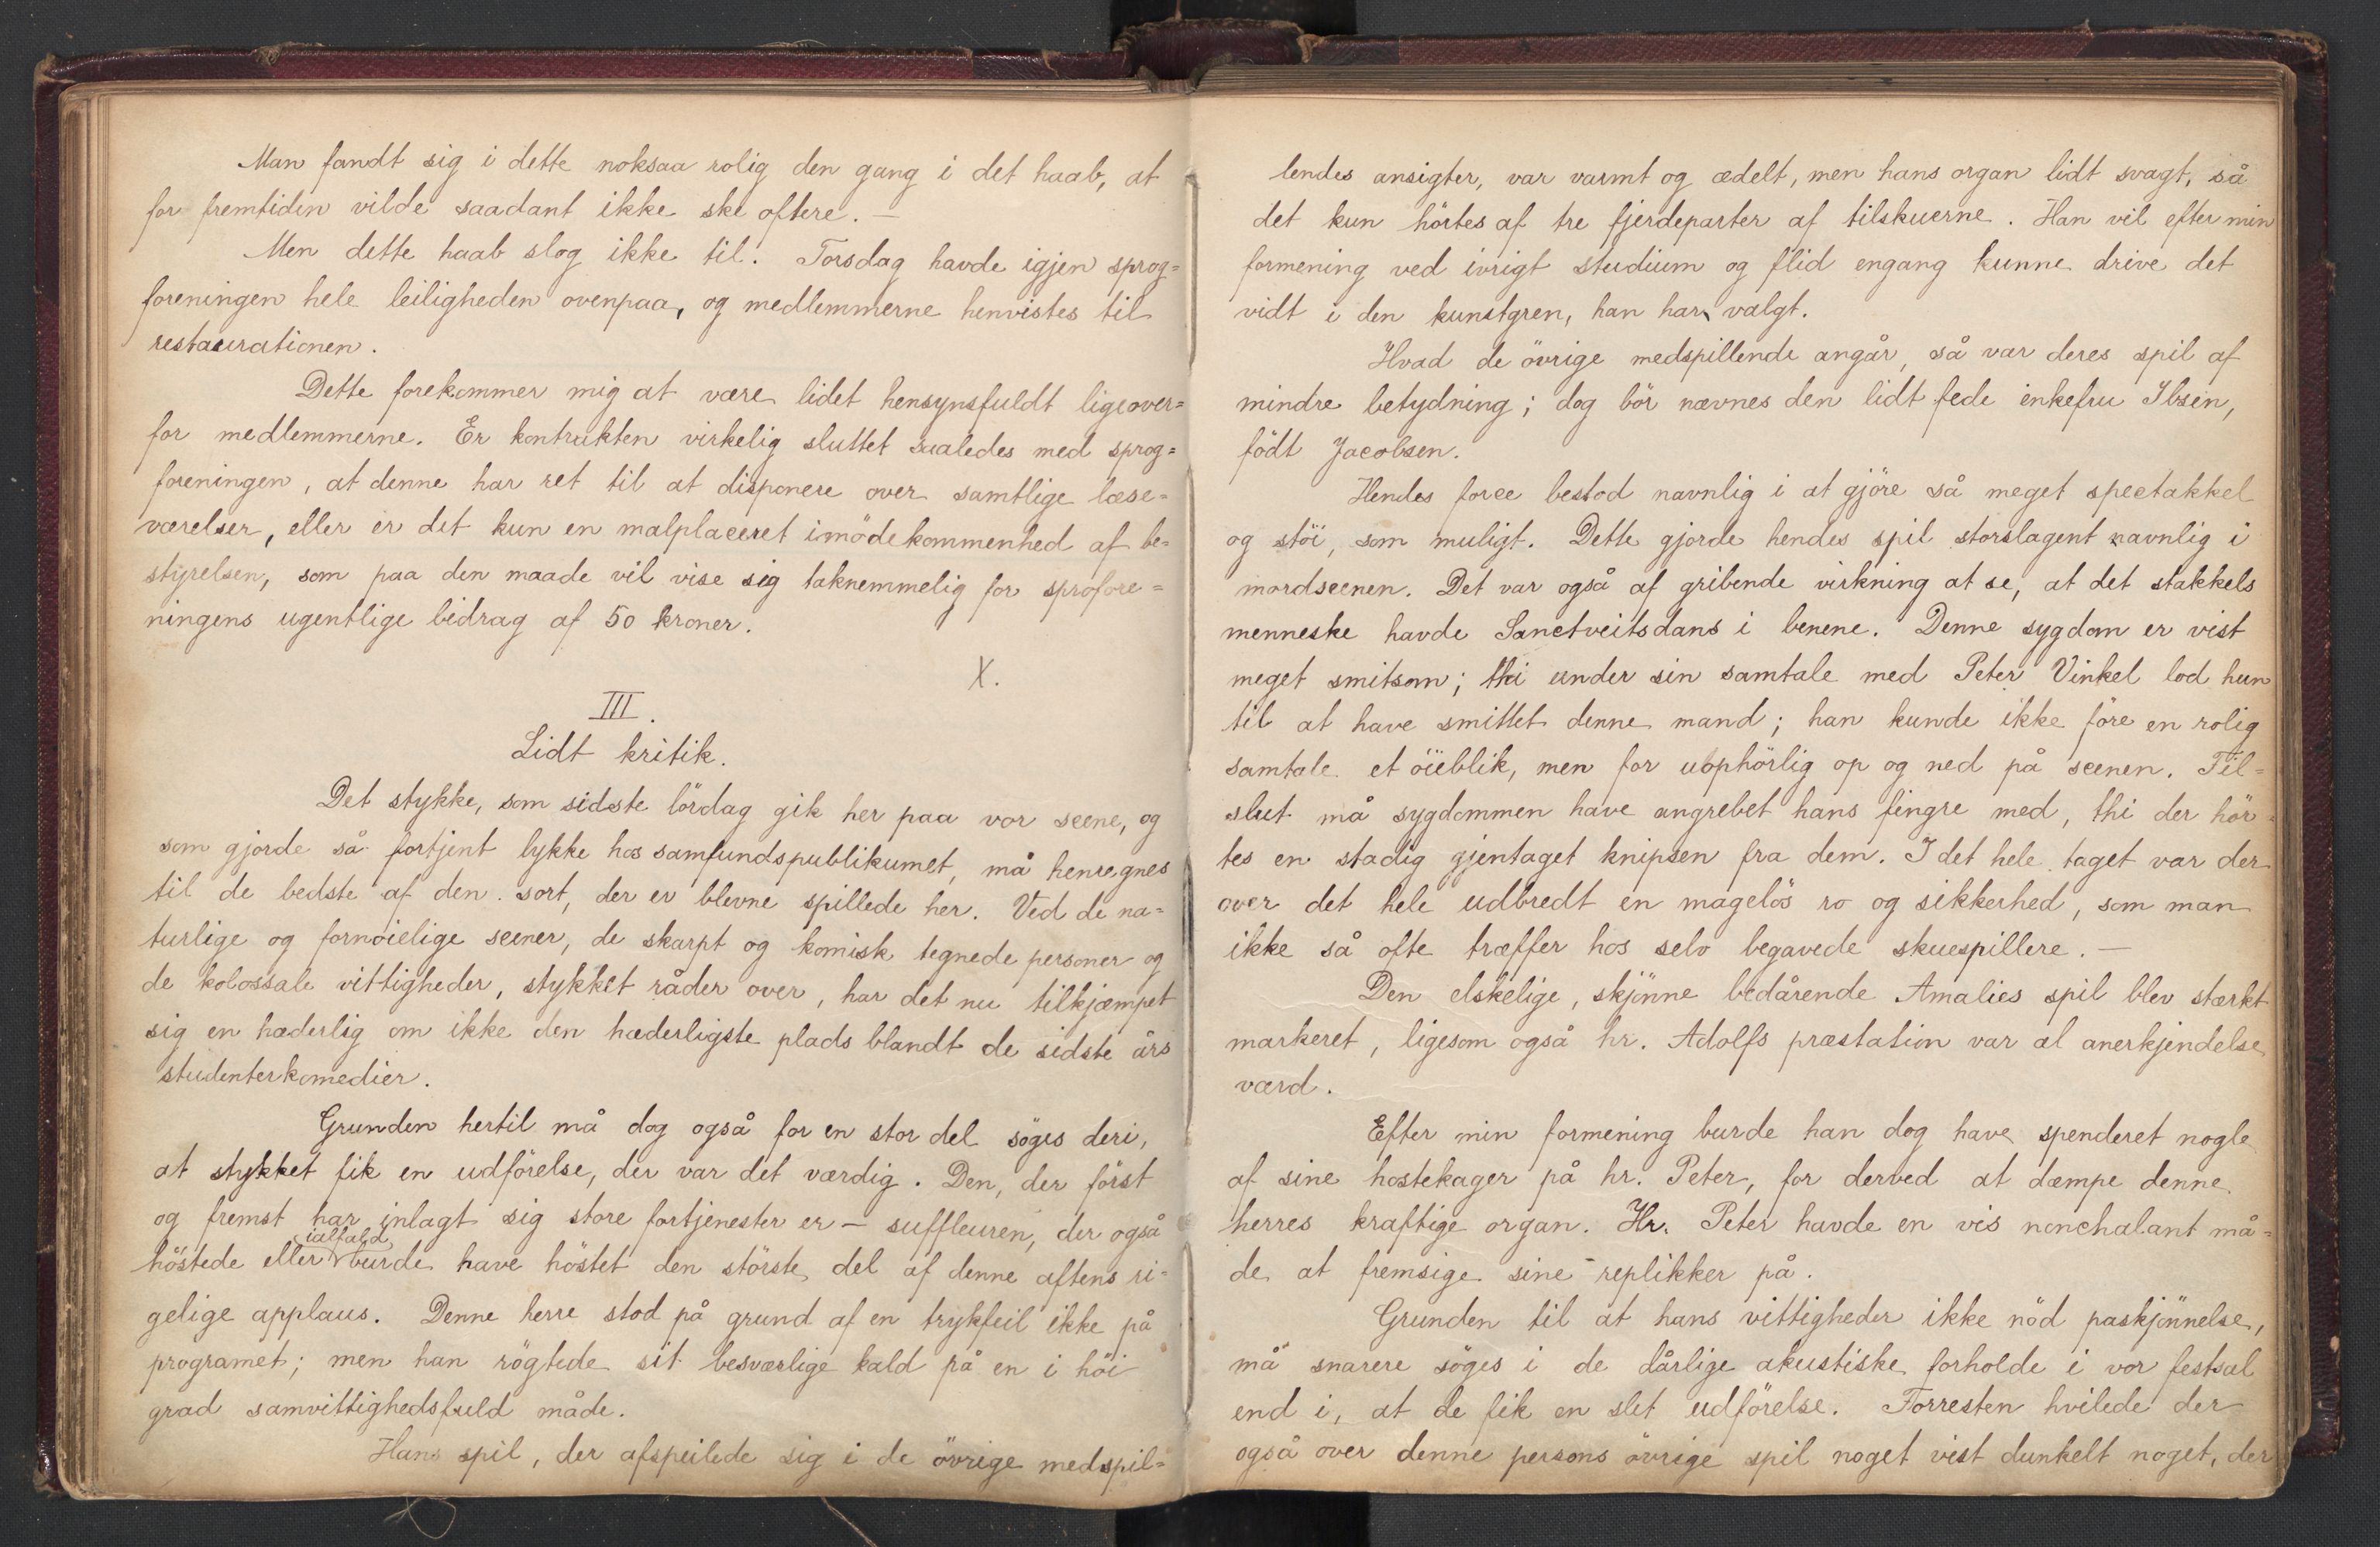 Man fandt sig i dette noksaa rolig den gang i det haab, at
for fremtiden vilde saadant ikke ske oftere. —
Men dette haab slog ikke til. Torsdag havde igjen sprog=
foreningen hele leiligheden ovenpaa, og medlemmerne henvistes til
restaurationen.
Dette forekommer mig at være lidet hensynsfuldt ligeover=
for medlemmerne. Er kontrakten virkelig sluttet saaledes med sprog=
foreningen, at denne har ret til at disponere over samtlige læse=
værelser, eller er det kun en malplaceret imödekommenhed af be=
styrelsen, som paa den maade vil vise sig taknemmelig for sprofore=
ningens ugentlige bidrag af 50 kroner.
X.
III.
Lidt kritik.
Det stykke, som sidste lördag gik her paa vor scene, og
som gjorde så fortjent lykke hos samfundspublikumet, må henregnes
til de bedste af den sort, der er blevne spillede her. Ved de na=
turlige og fornöielige scener, de skarpt og komisk tegnede personer og
de kolossale vittigheder, stykket råder over, har det nu tilkjæmpet
sig en hæderlig om ikke den hæderligste plads blandt de sidste års
studenterkomedier.
Grunden hertil må dog også for en stor del söges deri,
at stykket fik en udförelse, der var det værdig. Den, der först
og fremst har inlagt sig store fortjenester er — suffleuren, der også
höstede eller ialfald burde have höstet den störste del af denne aftens ri=
gelige applaus. Denne herre stod på grund af en trykfeil ikke på
programet; men han rögtede sit besværlige kald på en i höi
grad samvittighedsfuld måde.
Hans spil, der afspeilede sig i de övrige medspil=
lendes ansigter, var varmt og ædelt, men hans organ lidt svagt, så
det kun hörtes af tre fjerdeparter af tilskuerne. Han vil efter min
formening ved ivrigt studium og flid engang kunne drive det
vidt i den kunstgren, han har valgt.
Hvad de övrige medspillende angår, så var deres spil af
mindre betydning; dog bör nævnes den lidt fede enkefru Ibsen,
födt Jacobsen.
Hendes force bestod navnlig i at gjöre så meget spectakkel
og stöi, som muligt. Dette gjorde hendes spil storslagent navnlig i
mordscenen. Det var også af gribende virkning at se, at det stakkels
menneske havde Sanctveitsdans i benene. Denne sygdom er vist
meget smitsom; thi under sin samtale med Peter Vinkel lod hun
til at have smittet denne mand; han kunde ikke före en rolig
samtale et öieblik, men for uophörlig op og ned på scenen. Til=
slut må sygdommen have angrebet hans fingre med, thi der hör=
tes en stadig gjentaget knipsen fra dem. I det hele taget var der
over det hele udbredt en magelös ro og sikkerhed, som man
ikke så ofte træffer hos selv begavede skuespillere. —
Den elskelige, skjönne bedårende Amalies spil blev stærkt
markeret, ligesom også hr. Adolfs præstation var al anerkjendelse
værd.
Efter min formening burde han dog have spenderet nogle
af sine hostekager på hr. Peter, for derved at dæmpe denne
herres kraftige organ. Hr. Peter havde en vis nonchalant må=
de at fremsige sine replikker på.
Grunden til at hans vittigheder ikke nöd paskjönnelse,
må snarere söges i de dårlige akustiske forholde i vor festsal
end i, at de fik en slet udförelse. Forresten hvilede der
også over denne persons övrige spil noget vist dunkelt noget, der